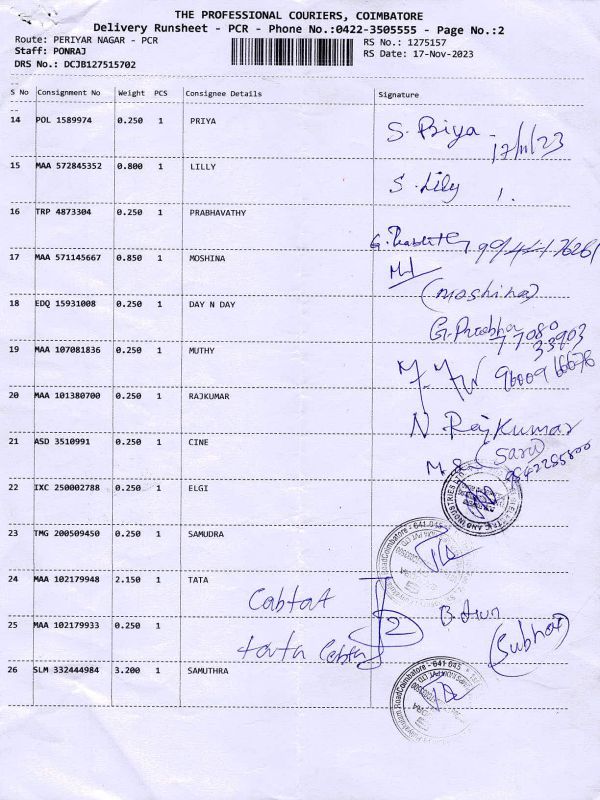 THE PROFESSIONAL COURIERS, COIMBATORE
Delivery Runsheet - PCR - Phone No.:0422-3505555 - Page No.:2
Route: PERIYAR NAGAR - PCR
RS No.: 1275157
Staff: PONRAJ
RS Date: 17-Nov-2023
DRS No.: DCJB127515702
S No Consignment No Weight PCS Consignee Details Signature
14 POL 1589974 0.250 1 PRIYA S. Priya 17/11/23
15 MAA 572845352 0.800 1 LILLY S. Lily
16 TRP 4873304 0.250 1 PRABHAVATHY
17 MAA 571145667 0.850 1 MOSHINA
(moshina)
18 EDQ 15931008 0.250 1 DAY N DAY G. Prabha 77080
33903
19 MAA 107081836 0.250 1 MUTHY
20 MAA 101380700 0.250 1 RAJKUMAR N Rajkumar
21 ASD 3510991 0.250 1 CINE
22 IXC 250002788 0.250 1 ELGI
23 TMG 200509450 0.250 1 SAMUDRA
24 MAA 102179948 2.150 1 TATA
25 MAA 102179933 0.250 1
26 SLM 332444984 3.200 1 SAMUTHRA